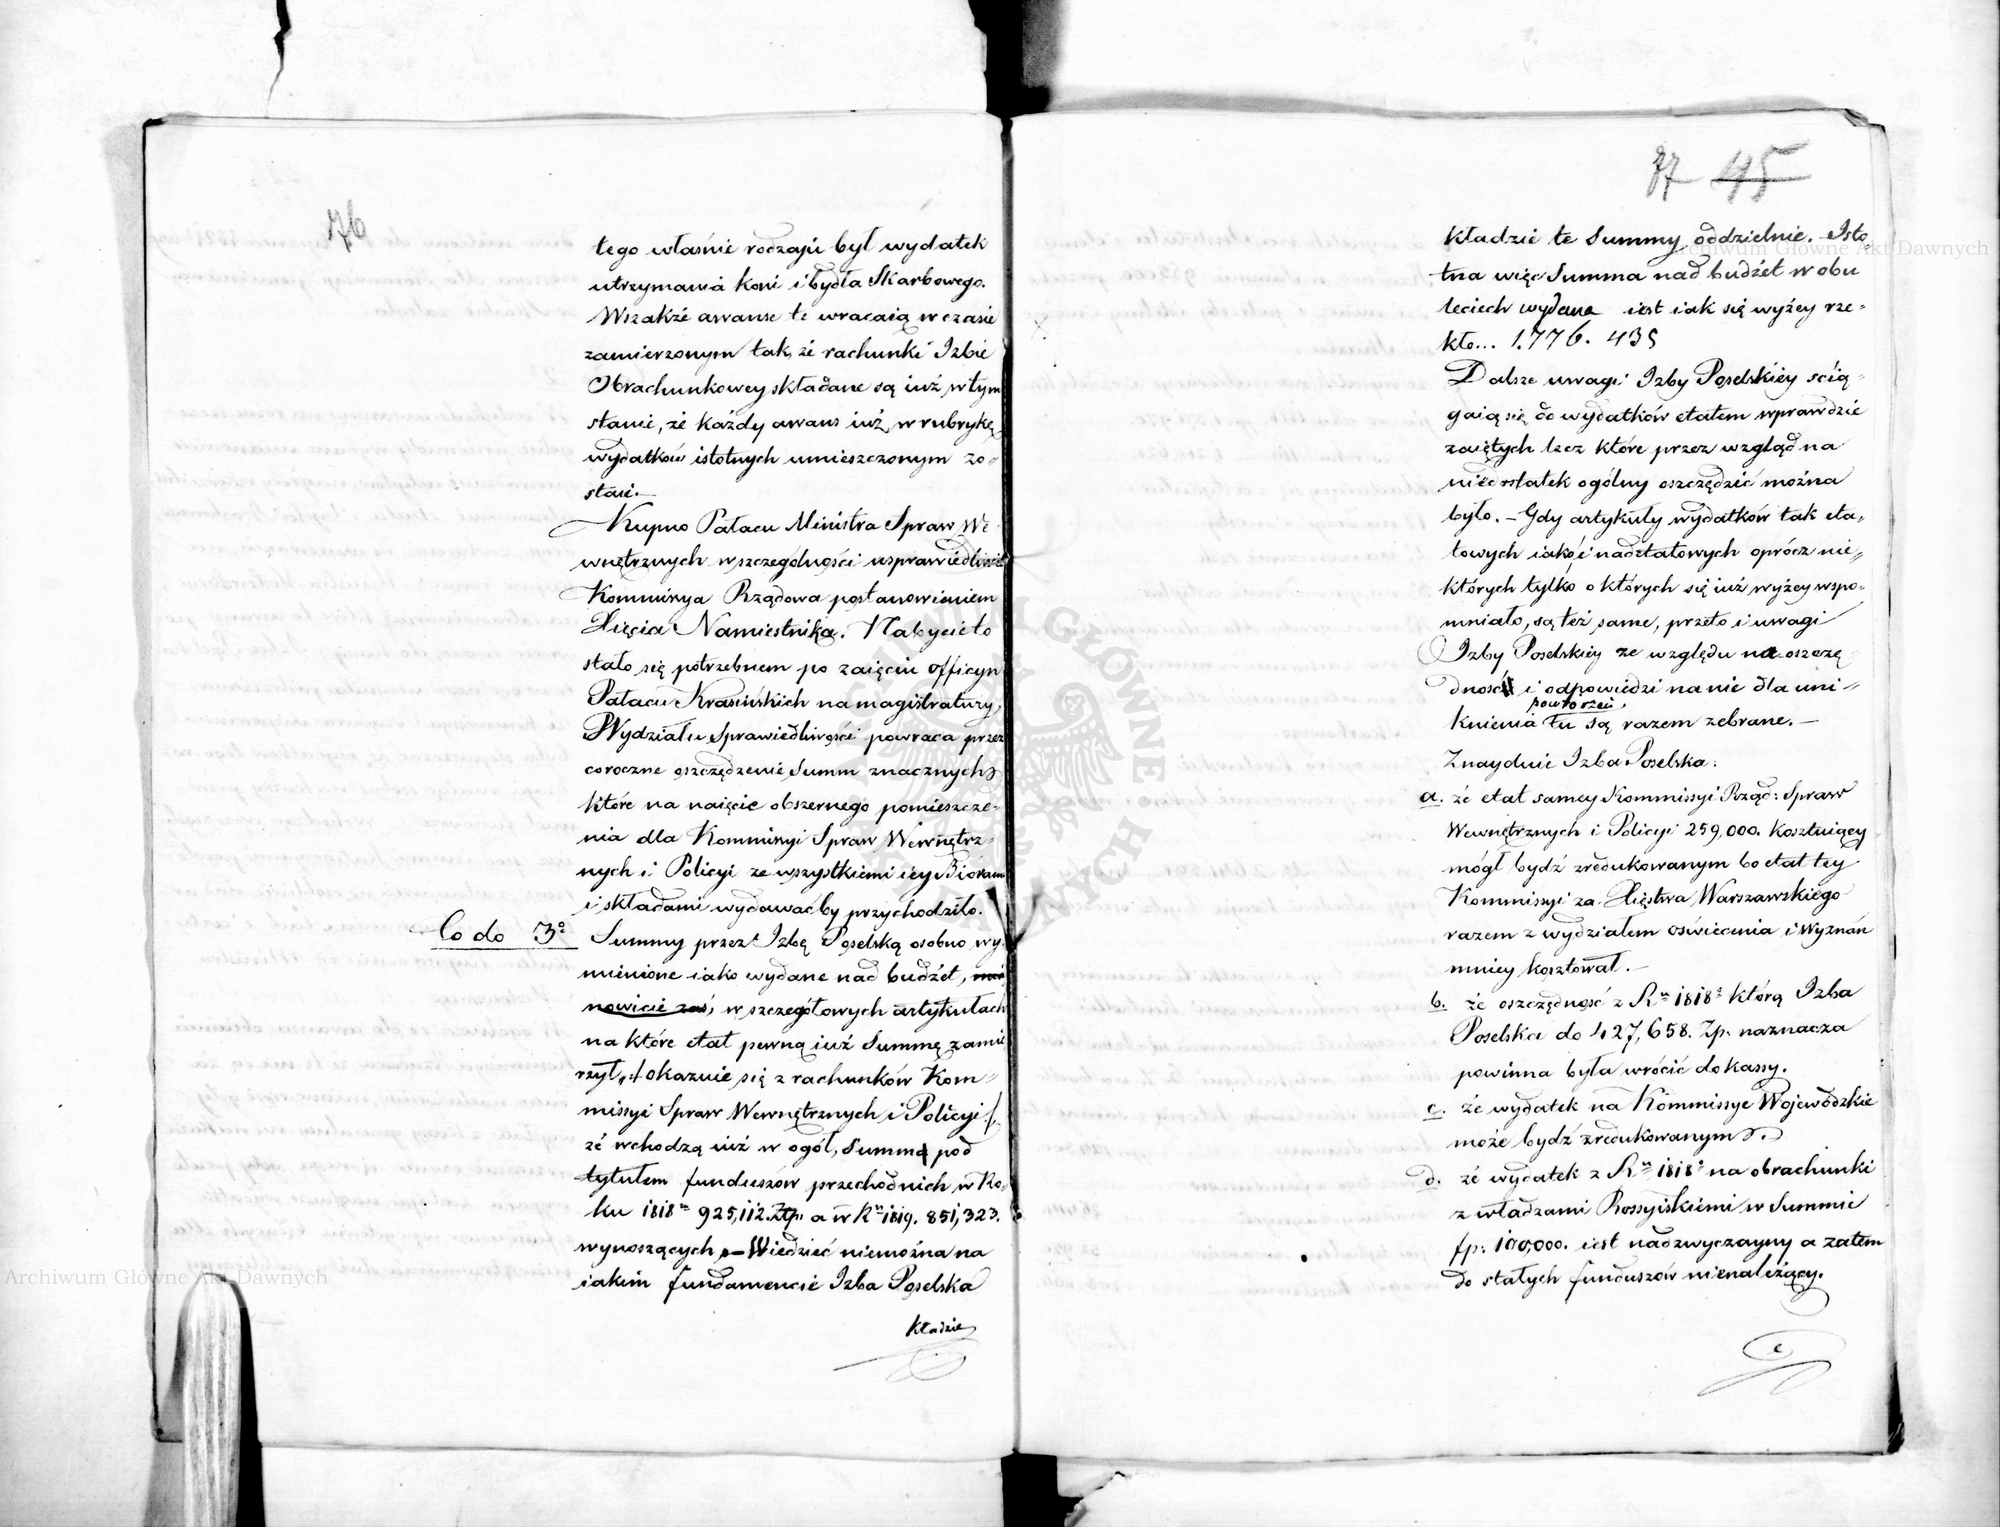 76
tego właśnie rodzaju był wydatek
utrzymania koni i bydła Skarbowego.
Wszakże awanse te wracaią w czasie
zamierzonym tak, że rachunki Izbie
Obrachunkowey składane są iuż w tym
stanie, że każdy awans iuż w rubrykę
wydatków istotnych umieszczonym zo„
stał.—
Kupno Pałacu Ministra Spraw We
wnętrznych w szczególności usprawiedliwił
Kommissya Rządowa postanowieniem
Xięcia Namiestnika. Nabycie to
stało się potrzebnem po zaięciu officyn
Pałacu Krasińskich na magistratury
Wydziału Sprawiedliwości powraca przez
coroczne oszczędzenie Summ znacznych
które na naięcie obszernego pomieszcze-
nia dla Kommissyi Spraw Wewnętrz-
nych i Policyi ze wszystkiemi iey Biórami
i składami wydawaćby przychodziło.
Co do 3º Summy przez Izbę Poselską osobno wy
mienione iako wydane nad budżet, mia
nowicie zaś, w szczegółowych artykułach
na które etat pewną iuż Summę zamie
rzył, okazuie się z rachunków Kom„
missyi Spraw Wewnętrznych i Policyi
że wchodzą iuż w ogół, Summ pod
tytułem funduszów przechodnich w Ro„
ku 1818 925,112. Złp. a w Rᵘ 1819. 851,323.
wynoszących — Wiedzieć niemożna na
iakim fundamencie Izba Poselska
kładzie
77 45
kładzie te Summy oddzielnie. Isto„
tna więc Summa nad budżet w obu
leciech wydana iest iak się wyżey rze„
kło... 1.776.435
Dalsze uwagi Izby Poselskiey ścią„
gaią się do wydatków etatem wprawdzie
zaiętych lecz które przez wzgląd na
niedostatek ogólny oszczędzić można
było. — Gdy artykuły wydatków tak eta„
towych iako i nadetatowych oprócz nie„
których tylko o których się iuż wyżey wspo„
mniało, są też same, przeto i uwagi
Izby Poselskiey ze względu na oszczę
dność i odpowiedzi na nie dla uni„
powtorzeń,
knienia tu są razem zebrane. —
Znayduie Izba Poselska:
a. że etat samey Kommissyi Rząd: Spraw
Wewnętrznych i Policyi 259,000. kosztuiący
mógł bydź zredukowanym bo etat tey
Kommissyi za Xięstwa Warszawskiego
razem z wydziałem oświecenia i Wyznań
mniey kosztował. —
b. że oszczędność z Rᵘ 1818º którą Izba
Poselska do 427,658. Zp. naznacza
powinna była wrócić do kassy.
c. że wydatek na Kommissye Wojewódzkie
może bydź zredukowanym.
d. że wydatek z Rᵘ 1818º na obrachunki
z władzami Rossyiskiemi w Summie
fp. 100,000. iest nadzwyczayny a zatem
do stałych funduszów nienależący.
e
Archiwum Główne Akt Dawnych
Archiwum Główne Akt Dawnych
ARCHIWUM GŁÓWNE AKT DAWNYCH